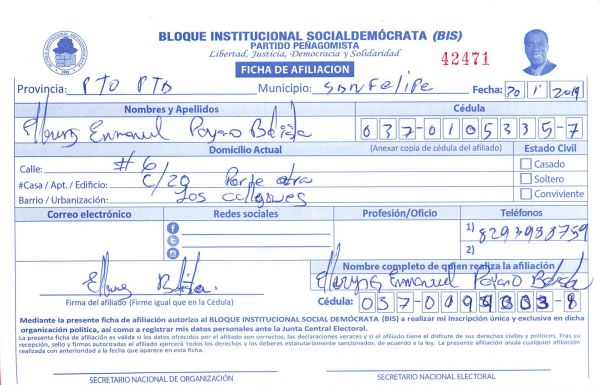 BLOQUE INSTITUCIONAL SOCIALDEMÓCRATA (BIS)
PARTIDO PEÑAGOMISTA
Libertad, Justicia, Democracia y Solidaridad
42471
FICHA DE AFILIACION
Provincia: PTO PTA Municipio: San Felipe Fecha: 30 1 2019
Nombres y Apellidos Cédula
Emmanuel Payano 037-0105335-7
Domicilio Actual (Anexar copia de cédula del afiliado) Estado Civil
Calle: #6 Casado
#Casa / Apt. / Edificio: C/20 Parte atra Soltero
Barrio / Urbanización: Los callejones Conviviente
Correo electrónico Redes sociales Profesión/Oficio Teléfonos
1) 8293988759
2)
Nombre completo de quien realiza la afiliación
Emmanuel Payano
Firma del afiliado (Firme igual que en la Cédula) Cédula: 037-
Mediante la presente ficha de afiliación autorizo al BLOQUE INSTITUCIONAL SOCIAL DEMÓCRATA (BIS) a realizar mi inscripción única y exclusiva en dicha
organización política, así como a registrar mis datos personales ante la Junta Central Electoral.
La presente ficha de afiliación es válida si los datos ofrecidos por el afiliado son correctos, las declaraciones veraces y si el afiliado tiene el disfrute de sus derechos civiles y políticos. Tras su
recepción, sello y firmas autorizadas el afiliado ejercerá todos los derechos y los deberes estatutariamente sancionados, de acuerdo a la ley. La presente afiliación anula cualquier afiliación
realizada con anterioridad a la fecha que aparece en esta ficha.
SECRETARIO NACIONAL DE ORGANIZACIÓN SECRETARIO NACIONAL ELECTORAL